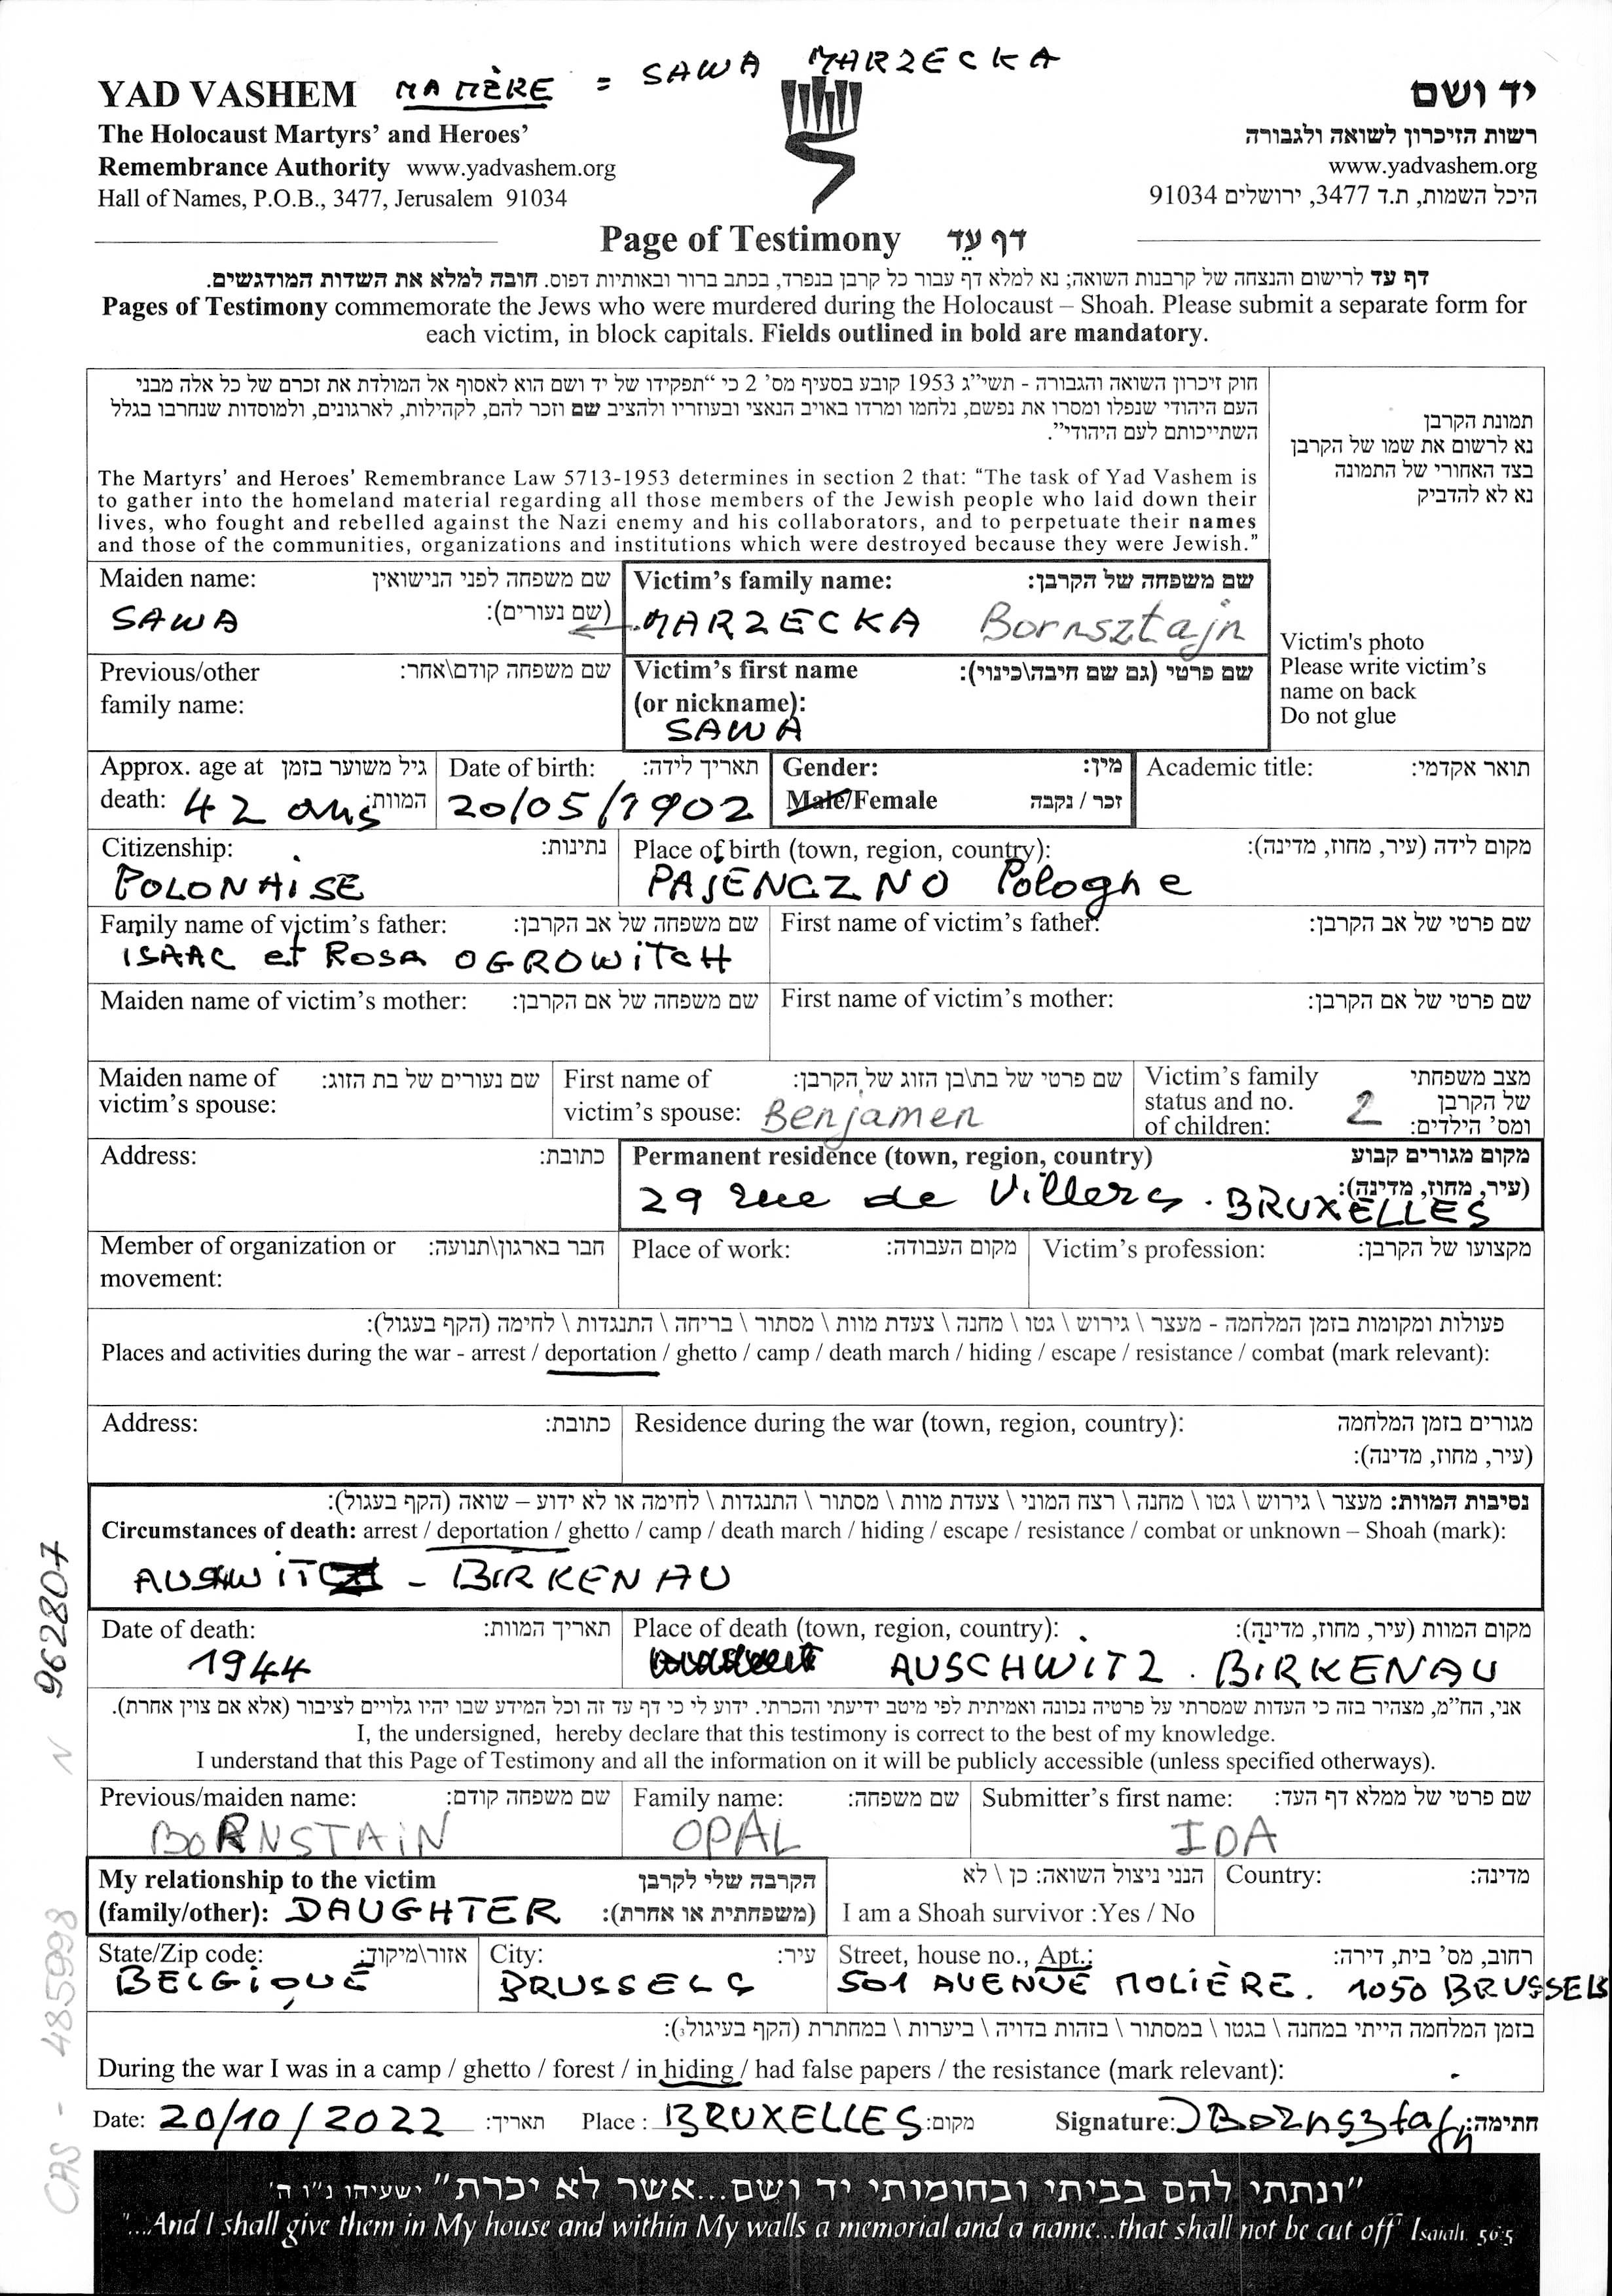 MA MÈRE = SAWA MARZECKA
YAD VASHEM
The Holocaust Martyrs' and Heroes'
Remembrance Authority www.yadvashem.org
Hall of Names, P.O.B., 3477, Jerusalem 91034
יד ושם
רשות הזיכרון לשואה ולגבורה
www.yadvashem.org
היכל השמות, ת.ד 3477, ירושלים 91034
Page of Testimony דף עֵד
דף עד לרישום והנצחה של קרבנות השואה; נא למלא דף עבור כל קרבן בנפרד, בכתב ברור ובאותיות דפוס. חובה למלא את השדות המודגשים.
Pages of Testimony commemorate the Jews who were murdered during the Holocaust – Shoah. Please submit a separate form for
each victim, in block capitals. Fields outlined in bold are mandatory.
חוק זיכרון השואה והגבורה - תשי"ג 1953 קובע בסעיף מס' 2 כי "תפקידו של יד ושם הוא לאסוף אל המולדת את זכרם של כל אלה מבני
העם היהודי שנפלו ומסרו את נפשם, נלחמו ומרדו באויב הנאצי ובעוזריו ולהציב שם וזכר להם, לקהילות, לארגונים, ולמוסדות שנחרבו בגלל
השתייכותם לעם היהודי".
The Martyrs' and Heroes' Remembrance Law 5713-1953 determines in section 2 that: "The task of Yad Vashem is
to gather into the homeland material regarding all those members of the Jewish people who laid down their
lives, who fought and rebelled against the Nazi enemy and his collaborators, and to perpetuate their names
and those of the communities, organizations and institutions which were destroyed because they were Jewish."
תמונת הקרבן
נא לרשום את שמו של הקרבן
בצד האחורי של התמונה
נא לא להדביק
Victim's photo
Please write victim's
name on back
Do not glue
Maiden name: שם משפחה לפני הנישואין
(שם נעורים):
SAWA
Victim's family name: שם משפחה של הקרבן:
MARZECKA Bornsztajn
Previous/other שם משפחה קודם\אחר:
family name:
Victim's first name שם פרטי (גם שם חיבה\כינוי):
(or nickname):
SAWA
Approx. age at גיל משוער בזמן
death: 42 ans המוות:
Date of birth: תאריך לידה:
20/05/1902
Gender: מין:
Male/Female זכר / נקבה
Academic title: תואר אקדמי:
Citizenship: נתינות:
POLONAISE
Place of birth (town, region, country): מקום לידה (עיר, מחוז, מדינה):
PAJENCZNO Pologne
Family name of victim's father: שם משפחה של אב הקרבן:
ISAAC et ROSA OGROWITCH
First name of victim's father: שם פרטי של אב הקרבן:
Maiden name of victim's mother: שם משפחה של אם הקרבן:
First name of victim's mother: שם פרטי של אם הקרבן:
Maiden name of שם נעורים של בת הזוג:
victim's spouse:
First name of שם פרטי של בת\בן הזוג של הקרבן:
victim's spouse: Benjamen
Victim's family מצב משפחתי
status and no. של הקרבן
of children: ומס' הילדים:
2
Address: כתובת:
Permanent residence (town, region, country) מקום מגורים קבוע
(עיר, מחוז, מדינה):
29 rue de Villers . BRUXELLES
Member of organization or חבר בארגון\תנועה:
movement:
Place of work: מקום העבודה:
Victim's profession: מקצועו של הקרבן:
פעולות ומקומות בזמן המלחמה - מעצר \ גירוש \ גטו \ מחנה \ צעדת מוות \ מסתור \ בריחה \ התנגדות \ לחימה (הקף בעגול):
Places and activities during the war - arrest / deportation / ghetto / camp / death march / hiding / escape / resistance / combat (mark relevant):
Address: כתובת:
Residence during the war (town, region, country): מגורים בזמן המלחמה
(עיר, מחוז, מדינה):
נסיבות המוות: מעצר \ גירוש \ גטו \ מחנה \ רצח המוני \ צעדת מוות \ מסתור \ התנגדות \ לחימה או לא ידוע – שואה (הקף בעגול):
Circumstances of death: arrest / deportation / ghetto / camp / death march / hiding / escape / resistance / combat or unknown – Shoah (mark):
- BIRKENAU
Date of death: תאריך המוות:
1944
Place of death (town, region, country): מקום המוות (עיר, מחוז, מדינה):
AUSCHWITZ . BIRKENAU
אני, הח"מ, מצהיר בזה כי העדות שמסרתי על פרטיה נכונה ואמיתית לפי מיטב ידיעתי והכרתי. ידוע לי כי דף עד זה וכל המידע שבו יהיו גלויים לציבור (אלא אם צוין אחרת).
I, the undersigned, hereby declare that this testimony is correct to the best of my knowledge.
I understand that this Page of Testimony and all the information on it will be publicly accessible (unless specified otherways).
Previous/maiden name: שם משפחה קודם:
BORNSTAIN
Family name: שם משפחה:
OPAL
Submitter's first name: שם פרטי של ממלא דף העד:
IDA
My relationship to the victim הקרבה שלי לקרבן
(family/other): DAUGHTER (משפחתית או אחרת):
הנני ניצול השואה: כן \ לא
I am a Shoah survivor :Yes / No
Country: מדינה:
State/Zip code: אזור\מיקוד:
BELGIQUE
City: עיר:
BRUSSELS
Street, house no., Apt.: רחוב, מס' בית, דירה:
501 AVENUE MOLIÈRE. 1050 BRUSSELS
בזמן המלחמה הייתי במחנה \ בגטו \ במסתור \ בזהות בדויה \ ביערות \ במחתרת (הקף בעיגול):
During the war I was in a camp / ghetto / forest / in hiding / had false papers / the resistance (mark relevant):
Date: 20/10/2022 תאריך: Place : BRUXELLES מקום: Signature: Bornsztajn חתימה:
"ונתתי להם בביתי ובחומותי יד ושם...אשר לא יכרת" ישעיהו נ"ו ה'
"...And I shall give them in My house and within My walls a memorial and a name...that shall not be cut off" Isaiah. 56:5
CAS - 485998 N 962807